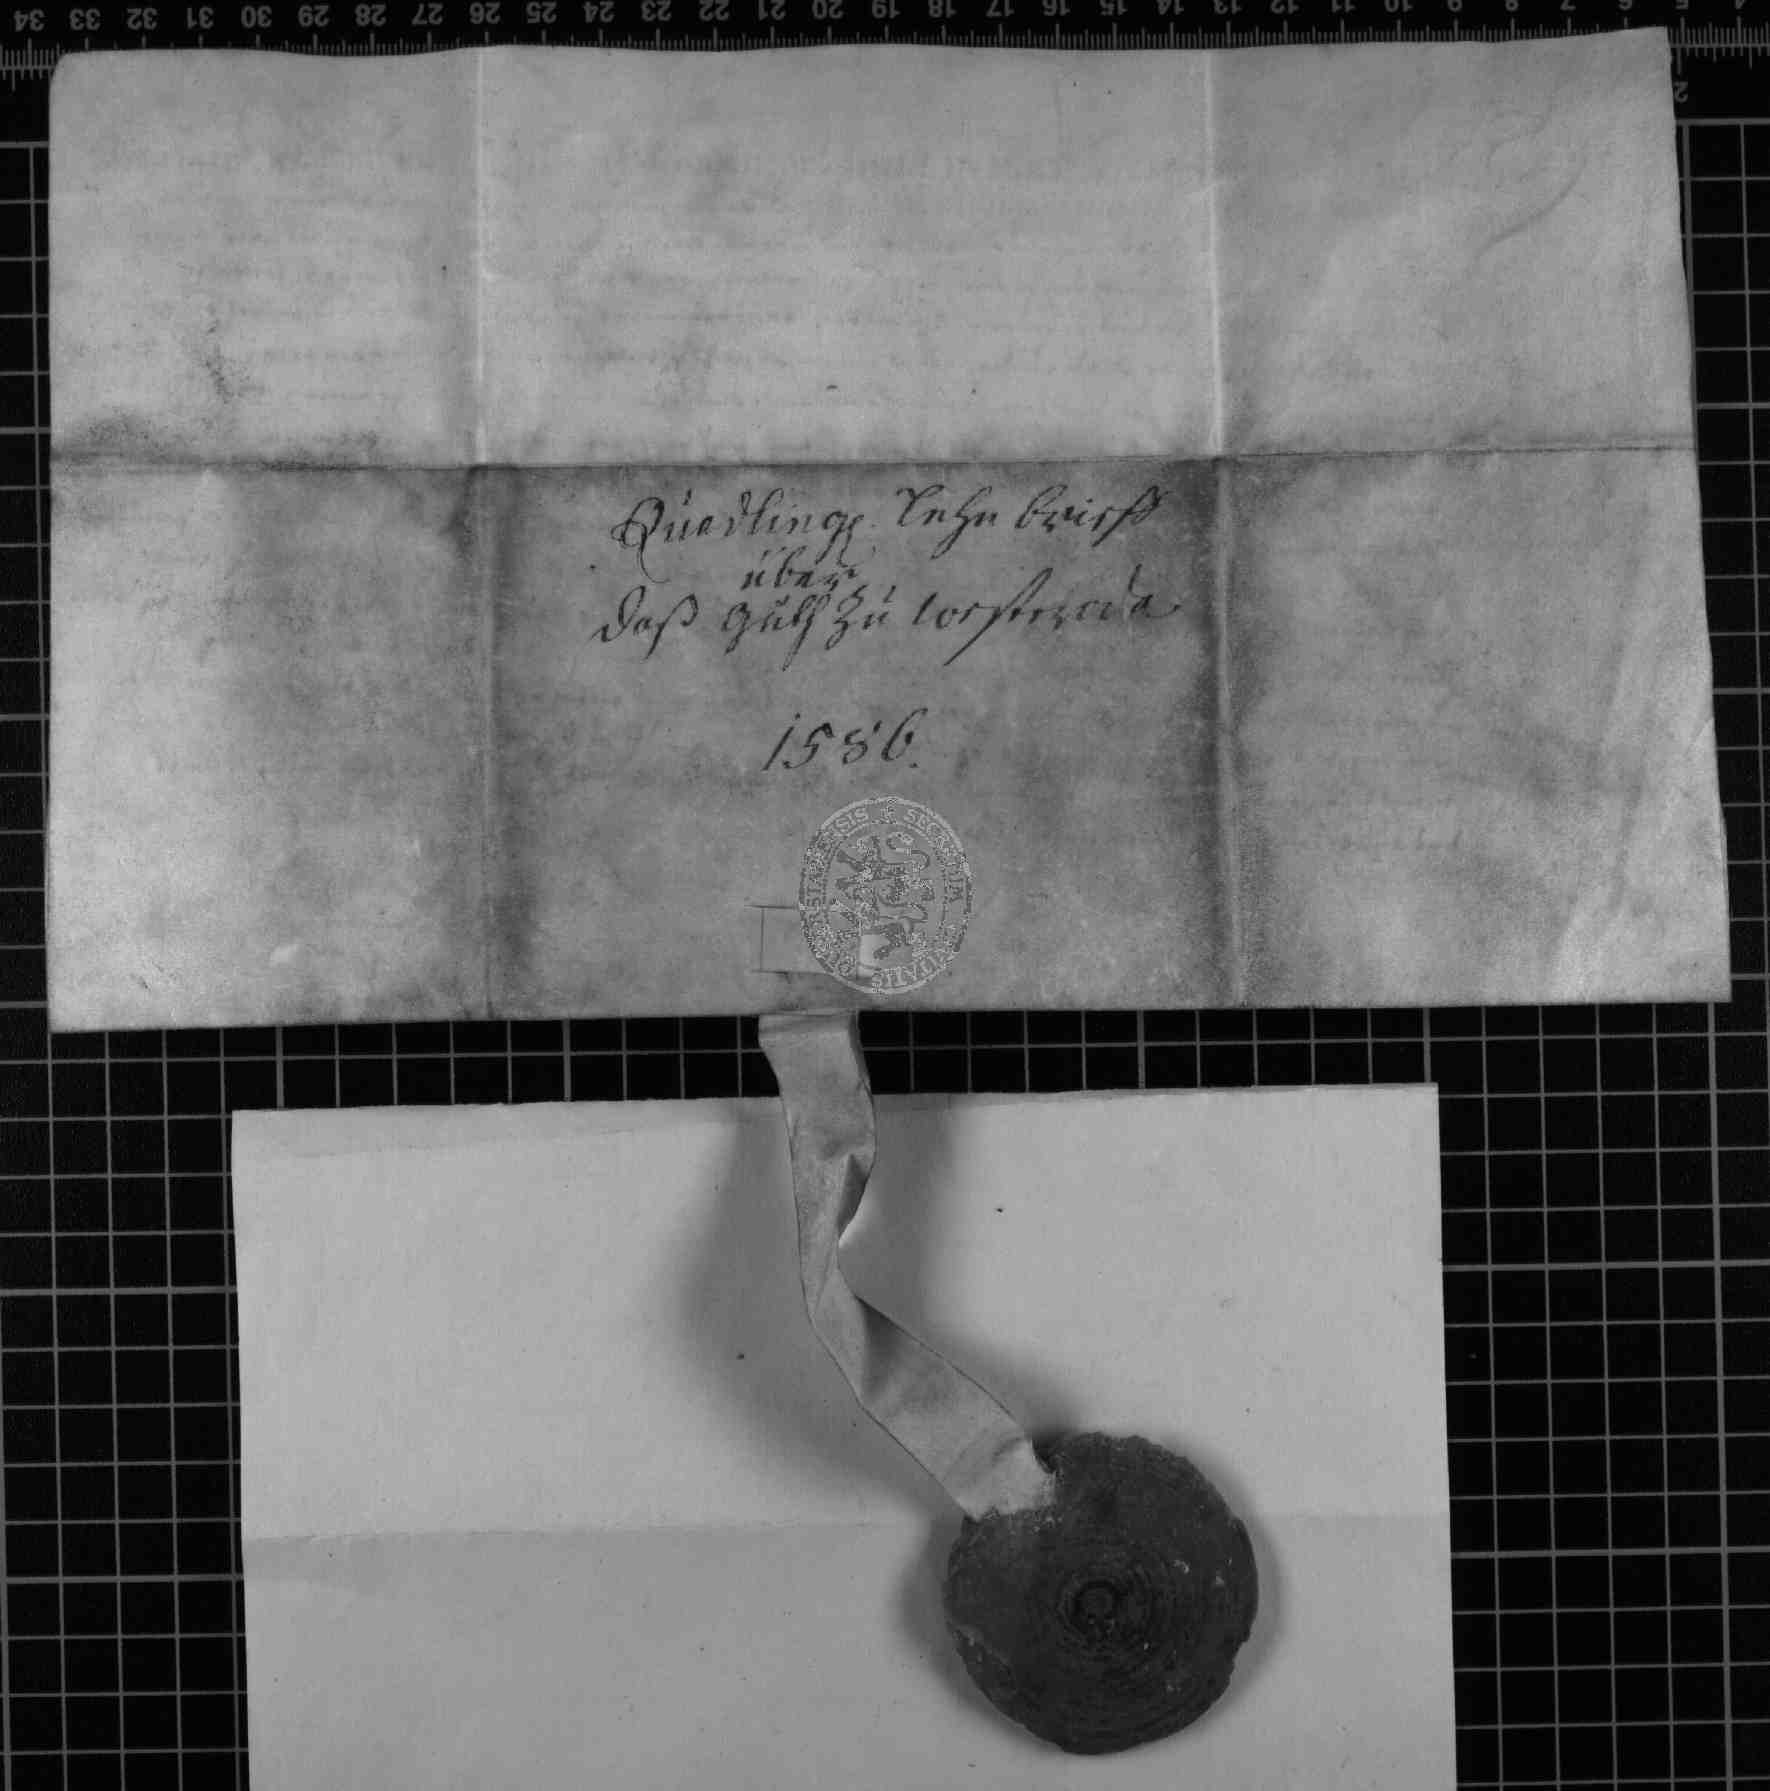 Quedlingl. Lehn brieff
über
daß guth zu westerode
1586.